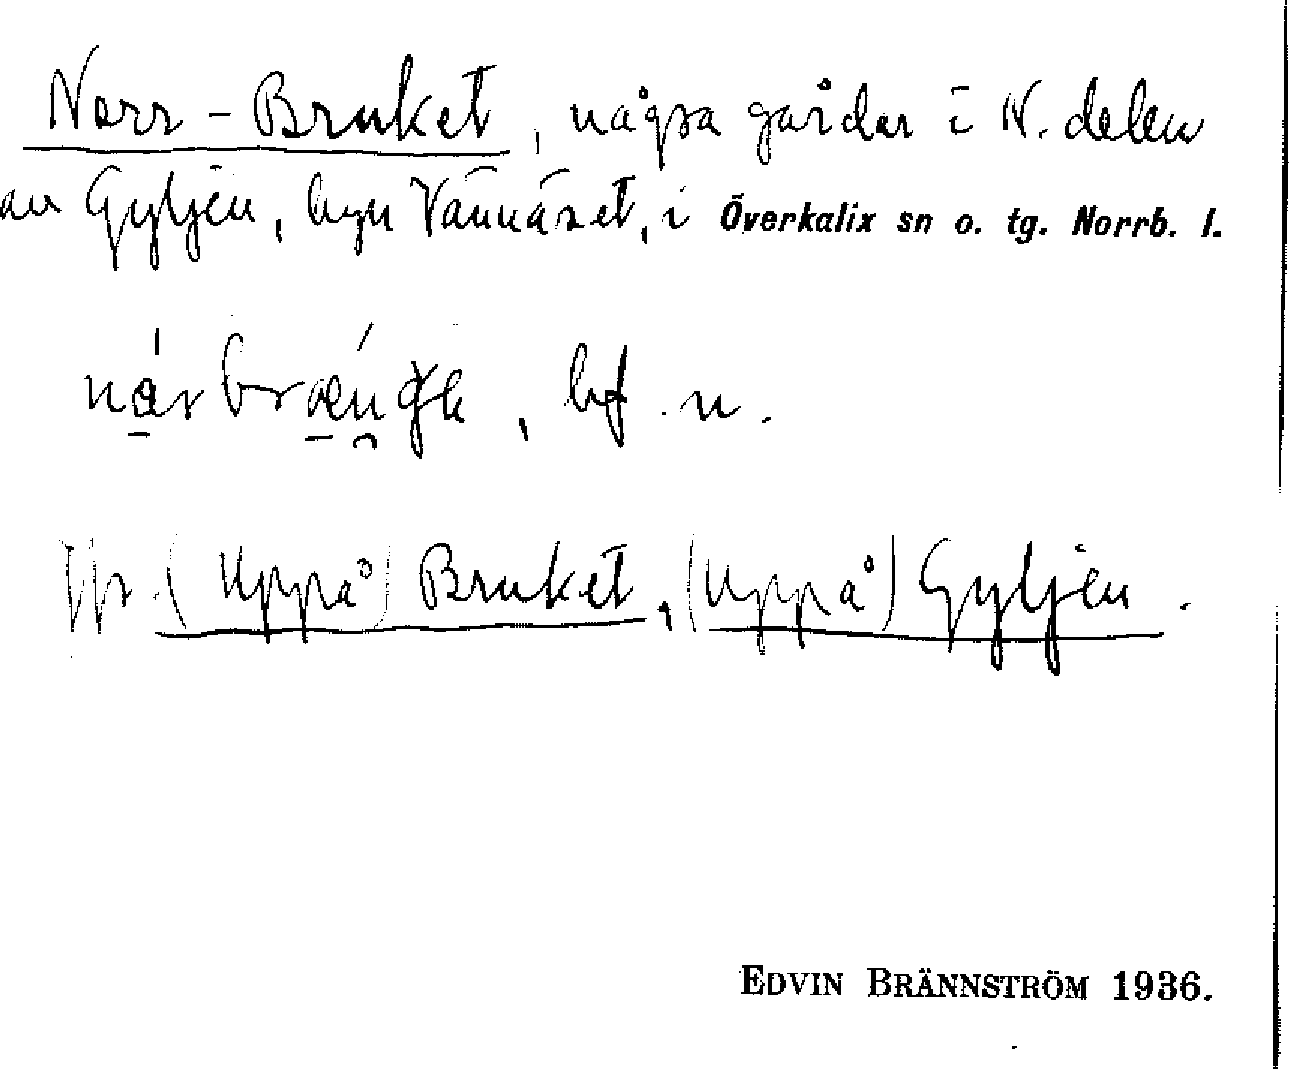 Norr-Bruket, några gårdar i N. delen
av Gyljen, byn Vännäset, i Överkalix sn o. tg. Norrb. l.
bf. n.
Jfr. (Uppå) Bruket, (Uppå) Gyljen.
EDVIN BRÄNNSTRÖM 1936.